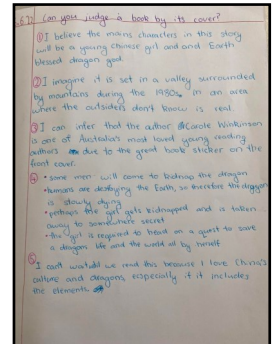 L.I: Can you judge a book by its cover?
① I believe the mains characters in this story
will be a young chinese girl and and Earth
blessed dragon god.
② I imagine it is set in a valley surrounded
by mantans during the 1980s, in an area
where the outsiders don't know is real.
③ I can infer that the author Carole Wilkinson
is one of Australia's most loved young reading
authors due to the great book sticker on the
front cover.
④ • some men will come to kidnap the dragon
• humans are destroying the Earth, so therefore the dragon
is slowly dying
• perhaps the girl gets kidnapped and is taken
away to somewhere secret
• the girl is required to head on a quest to save
a dragons life and the world all by herself
⑤ I can't wait until we read this because I love China's
culture and dragons, especially if it includes
the elements.